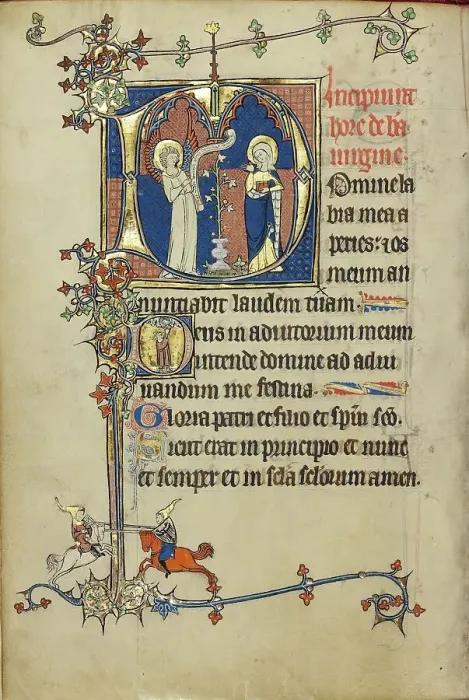 Incipiunt
hore de bā
uirgine.
Domine la
bia mea a
peries: ⁊ os
meum an
nuntiabit laudem tuam.
Deus in adiutorium meum
intende domine ad adiu
uandum me festina.
Gloria patri et filio et spiū sc̄o.
Sicut erat in principio et nunc
et semper et in sc̄la sc̄lorum amen.